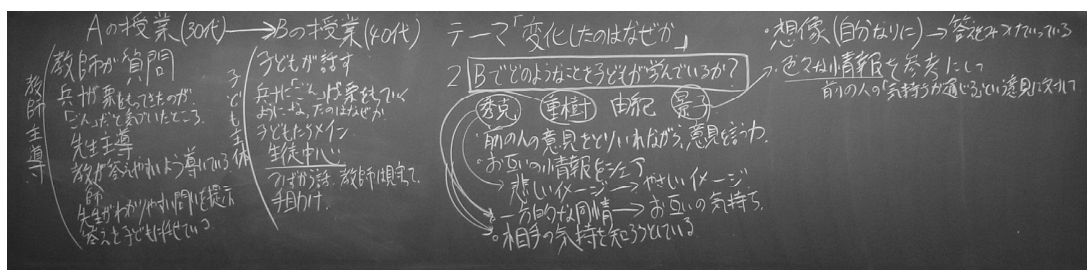 Aの授業(30代)→Bの授業(40代)
教師主導
教師が質問
兵十が栗をもってきたのが、
「ごん」だと気づいたところ。
先生主導
教師が答えやすいよう導いている
先生がわかりやすい問いを提示
答えを子どもに任せている
子ども主体
子どもが話す
兵十に「ごん」は栗をもっていく
ようになったのはなぜか
子どもたちメイン
生徒中心
つぎから話、教師は見守って、
手助け。
テーマ「変化したのはなぜか」
2 Bでどのようなことを子どもが学んでいるか?
秀克 重樹 由紀 景子
・前の人の意見をとりいれながら、意見を言う力。
・お互いの情報をシェア
→悲しいイメージ→やさしいイメージ
・一方的な同情→お互いの気持ち。
・相手の気持を知ろうとしている
・想像(自分なりに)→答えをみつけていっている
・色々な情報を参考にして
前の人の「気持ちが通じる」という意見に対して